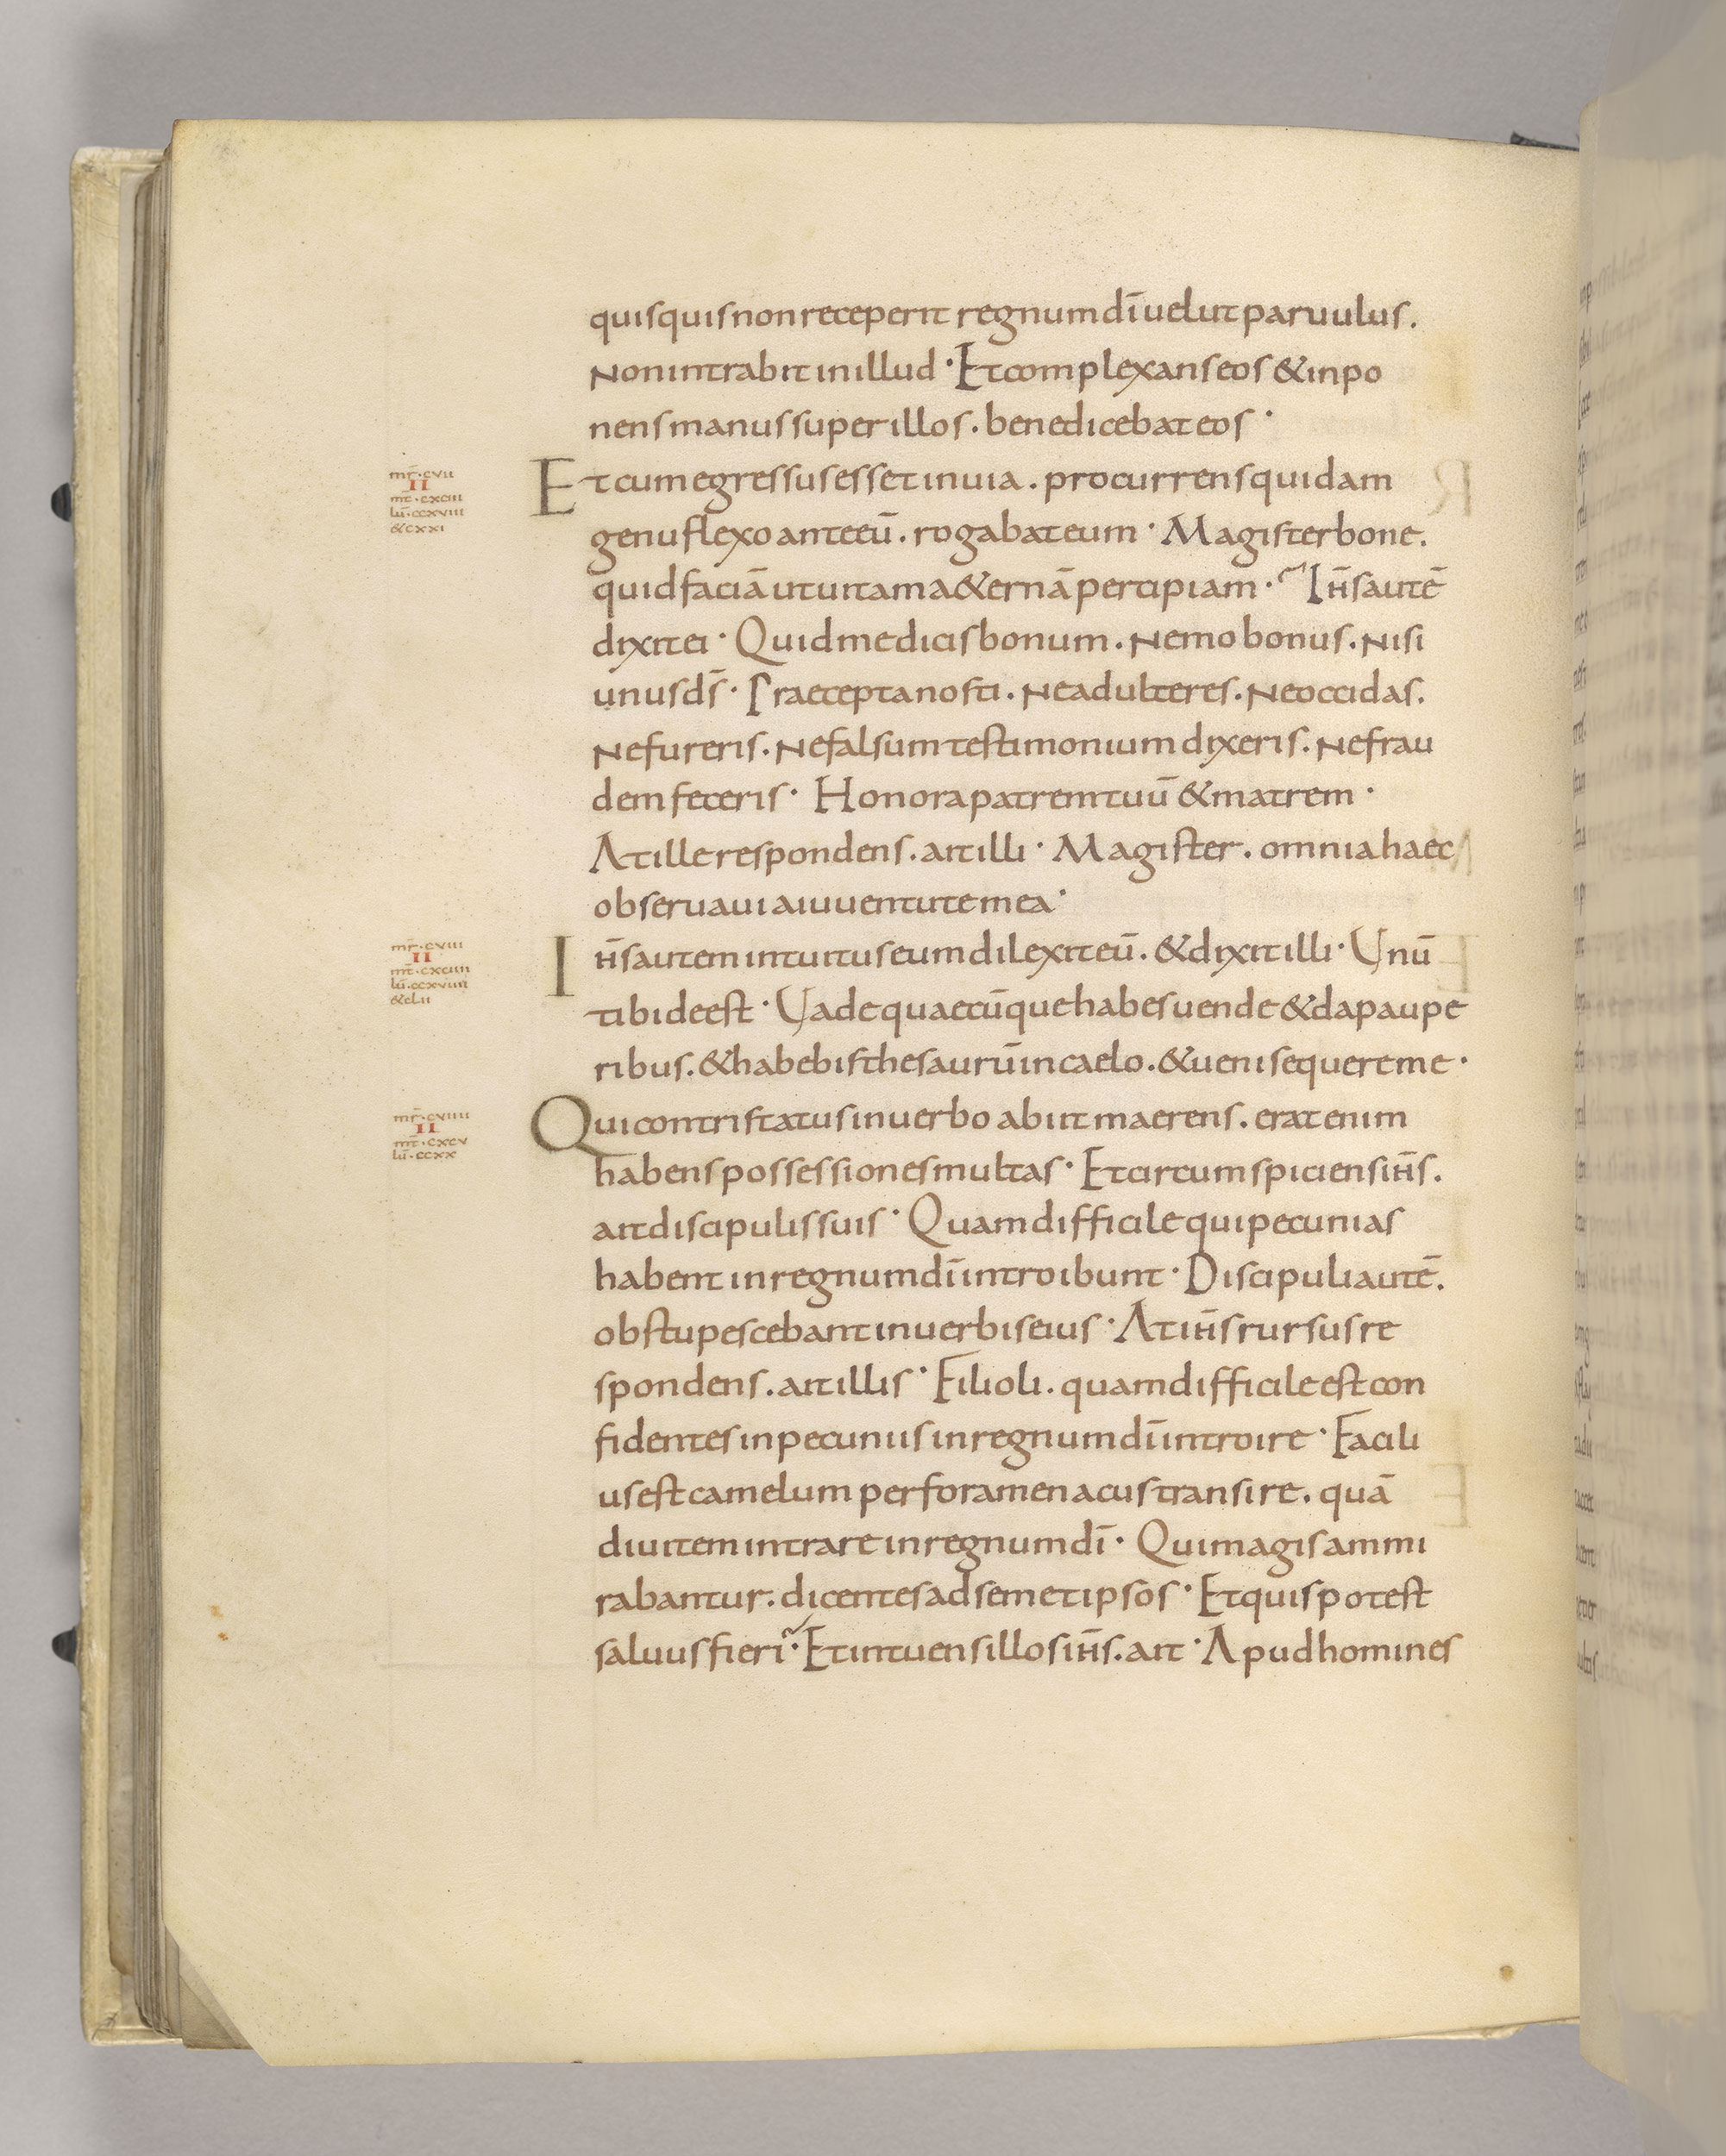 quisquis non receperit regnum dī uelut paruulus.
Non intrabit in illud · Et complexans eos & inpo
nens manus super illos. benedicebat eos ·
mr̄·cvii
II
mt̄·cxciii
lū·ccxviii
&ccxxi
Et cum egressus esset in uia. procurrens quidam
genu flexo ante eū. rogabat eum · Magister bone.
quid faciā ut uitam a&ernā percipiam · Ih̄s autē
dixit ei · Quid me dicis bonum. Nemo bonus. Nisi
unus ds̄ · Praecepta nosti. Ne adulteres. Ne occidas.
Ne fureris. Ne falsum testimonium dixeris. Ne frau
dem feceris · Honora patrem tuū & matrem ·
At ille respondens. ait illi · Magister. omnia haec
obseruaui a iuuentute mea ·
mr̄·cviii
II
mt̄·cxciiii
lū·ccxviiii
&clii
Ih̄s autem intuitus eum dilexit eū. & dixit illi · Unū
tibi deest · Uade quaecūque habes uende & da paupe
ribus. & habebis thesaurū in caelo. & ueni sequere me ·
mr̄·cviiii
II
mt̄·cxcv
lū·ccxx
Qui contristatus in uerbo abiit maerens. erat enim
habens possessiones multas · Et circumspiciens ih̄s.
ait discipulis suis · Quam difficile qui pecunias
habent in regnum dī introibunt · Discipuli autē.
obstupescebant in uerbis eius · At ih̄s rursus re
spondens. ait illis · Filioli. quam difficile est con
fidentes in pecuniis in regnum dī introire · Facili
us est camelum per foramen acus transire. quā
diuitem intrare in regnum dī · Qui magis ammi
rabantur: dicentes ad semetipsos · Et quis potest
saluus fieri · Et intuens illos ih̄s. ait · Apud homines